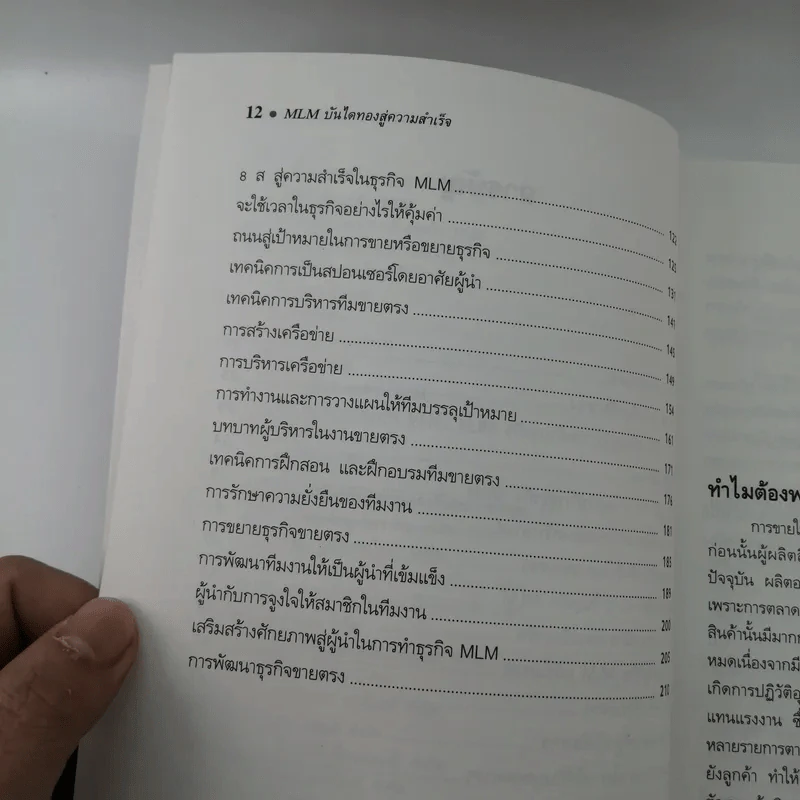 12 ● MLM บันไดทองสู่ความสำเร็จ
8 ส สู่ความสำเร็จในธุรกิจ MLM
จะใช้เวลาในธุรกิจอย่างไรให้คุ้มค่า
ถนนสู่เป้าหมายในการขายหรือขยายธุรกิจ 131
เทคนิคการเป็นสปอนเซอร์โดยอาศัยผู้นำ 141
เทคนิคการบริหารทีมขายตรง
การสร้างเครือข่าย 149
การบริหารเครือข่าย 154
การทำงานและการวางแผนให้ทีมบรรลุเป้าหมาย 161
บทบาทผู้บริหารในงานขายตรง 171
เทคนิคการฝึกสอน และฝึกอบรมทีมขายตรง
การรักษาความยั่งยืนของทีมงาน 181
การขยายธุรกิจขายตรง 185
การพัฒนาทีมงานให้เป็นผู้นำที่เข้มแข็ง 189
ผู้นำกับการจูงใจให้สมาชิกในทีมงาน 200
เสริมสร้างศักยภาพสู่ผู้นำในการทำธุรกิจ MLM 205
การพัฒนาธุรกิจขายตรง 210
ทำไมต้องพ
การขายใ
ก่อนนั้นผู้ผลิตสิ
ปัจจุบัน ผลิตอ
เพราะการตลาด
สินค้านั้นมีมาก
หมดเนื่องจากมี
เกิดการปฏิวัติอุ
แทนแรงงาน ซึ่
หลายรายการตา
ยังลูกค้า ทำให้